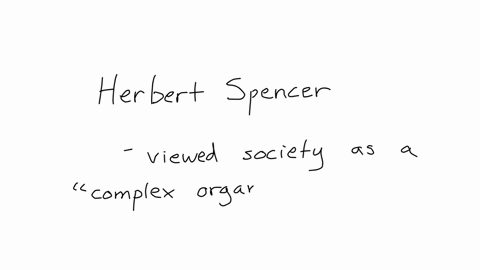 Herbert Spencer
- viewed society as a
"complex organ